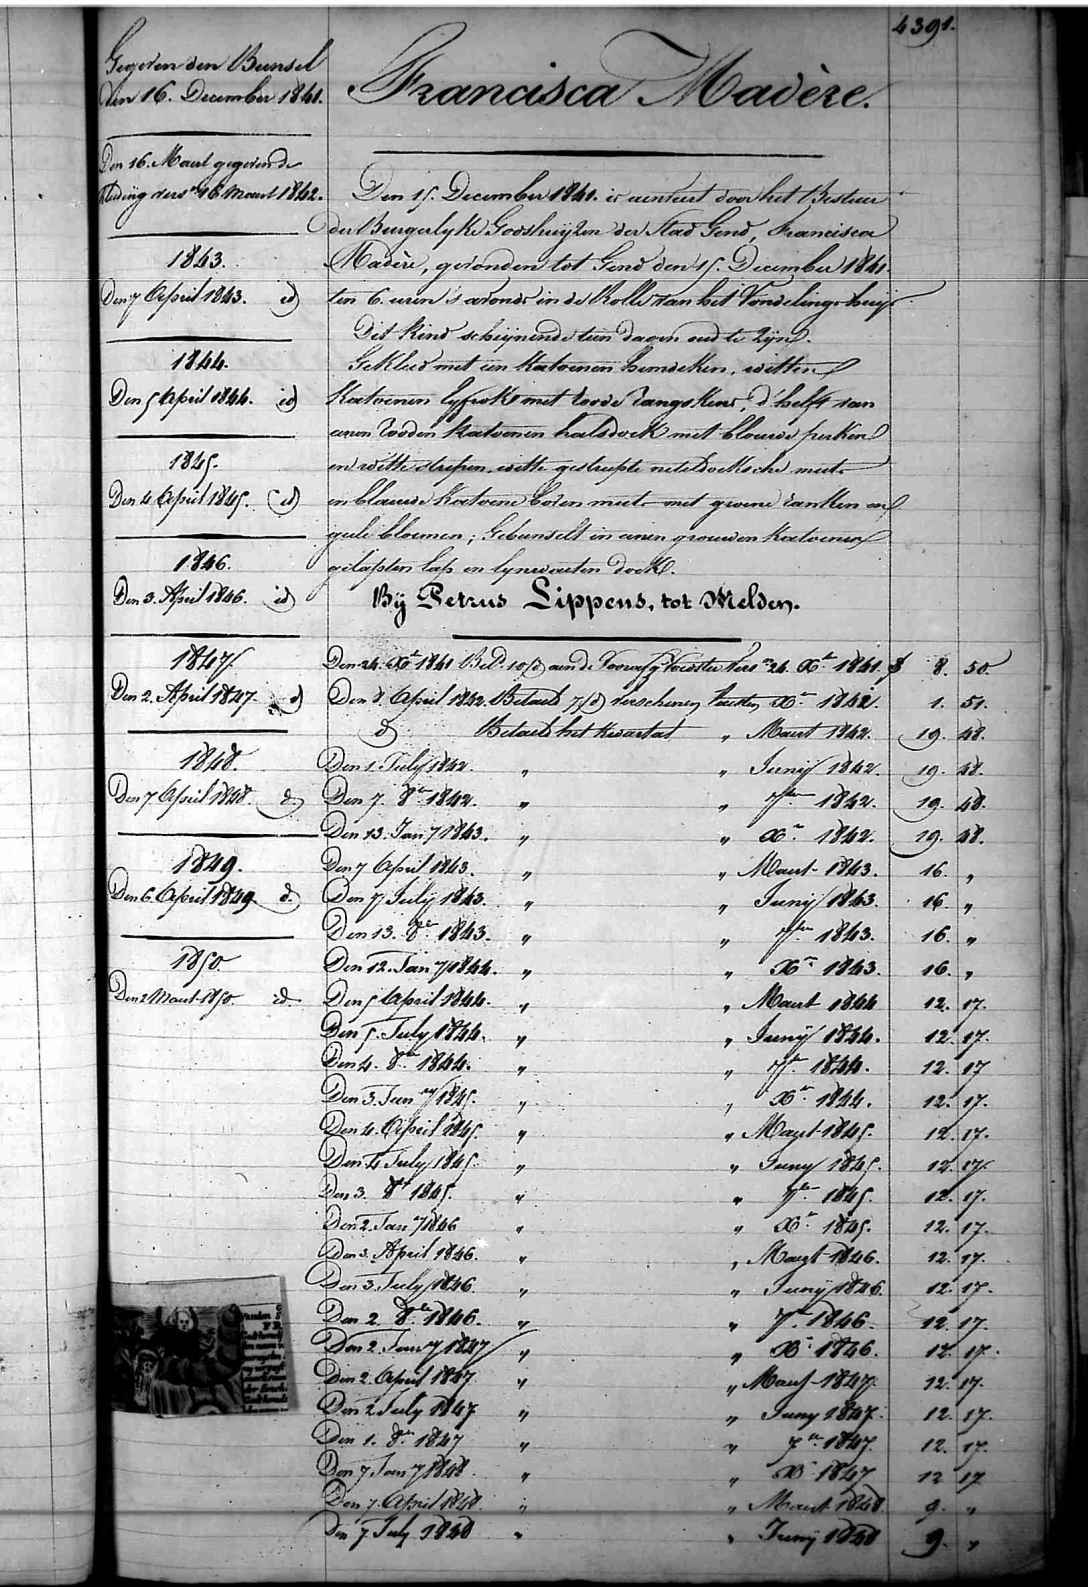 4391.
Gegeven den Bunsel
den 16. December 1841.
Den 16. Maert gegeven de
Kleeding vers.n 16 Maert 1842.
1843.
Den 7 April 1843. id
1844.
Den 5 April 1844. id
1845.
Den 4 April 1845. id
1846.
Den 3. April 1846. id
1847.
Den 2. April 1847. d
1848.
Den 7 April 1848. d.
1849.
Den 6. April 1849. d.
1850.
Den 2 Maert 1850. d.
Francisca Madère.
Den 15. December 1841. is aenveert door het Bestuur
der Burgerlyke Godshuyzen der Stad Gend, Francisca
Madère, gevonden tot Gend den 15. December 1841.
ten 6. uren 's avonds in de Rolle van het Vondelings-huijs.
Dit kind scheijnende een dagen oud te zijn.
Gekleed met een Katoenen hemdeken, witten
Katoenen lyfrok met roode rangskens, d'helft van
eenen rooden Katoenen halsdoek met blauwe perken
en witte strepen, witte gestreepte neteldoeksche muts
en blauwe Katoene boven muts met groene ranken en
gele bloemen; Gebunselt in eenen grauwen Katoenen
gelapten lap en lynwaeten doek.
Bÿ Petrus Lippens, tot Melden.
Den 24. Xr 1841 Bet. 10/d aen de Voedster Vers.n 24. Xr 1841. f 8. 50
Den 8. April 1842. Betaeld 7/d verschenen Xr 1842. 1. 51.
d Betaeld het Kwartael " Maert 1842. 19. 48.
Den 1. July 1842. " " Junij 1842. 19. 48.
Den 7. 8r 1842. " " 7ber 1842. 19. 48.
Den 13. Jany 1843. " " Xr 1842. 19. 48.
Den 7 April 1843. " " Maert 1843. 16. "
Den 7 July 1843. " " Junij 1843. 16. "
Den 13. 8r 1843. " " 7ber 1843. 16. "
Den 12. Jany 1844. " " Xr 1843. 16. "
Den 5 April 1844. " " Maert 1844 12. 17.
Den 5. July 1844. " " Junij 1844. 12. 17.
Den 4. 8r 1844. " " 7ber 1844. 12. 17
Den 3. Jany 1845. " " Xr 1844. 12. 17.
Den 4. April 1845. " " Maert 1845. 12. 17.
Den 4 July 1845. " " Juny 1845. 12. 17.
Den 3. 8r 1845. " " 7ber 1845. 12. 17.
Den 2. Jany 1846 " " Xr 1845. 12. 17.
Den 3. April 1846. " " Maert 1846. 12. 17.
Den 3. July 1846. " " Junij 1846. 12. 17.
Den 2. 8r 1846. " " 7r 1846. 12. 17.
Den 2. Jany 1847 " " Xr 1846. 12. 17.
Den 2. April 1847. " " Maert 1847. 12. 17.
Den 2 July 1847 " " Juny 1847. 12. 17.
Den 1. 8r 1847 " " 7r 1847. 12. 17.
Den 7 Jany 1848. " " Xr 1847 12 17
Den 7. April 1848. " " Maert 1848. 9. "
Den 7 July 1848 " " Junij 1848 9. "